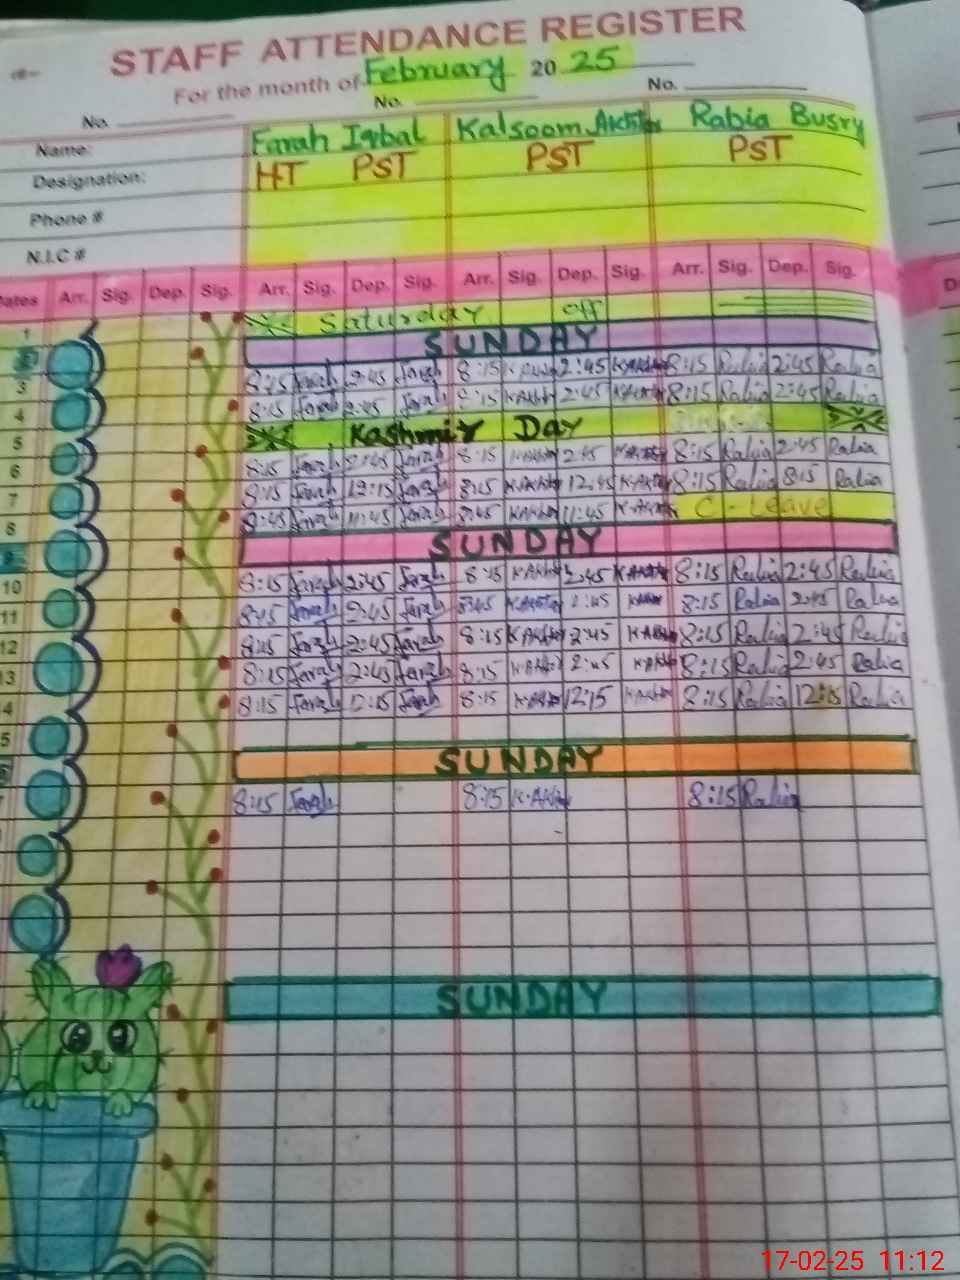 STAFF ATTENDANCE REGISTER
For the month of February 20 25
No. No. No.
Name: Farah Iqbal Kalsoom Akhter Rabia Busry
Designation: HT PST PST PST
Phone #
N.I.C #
Dates Arr. Sig. Dep. Sig. Arr. Sig. Dep. Sig. Arr. Sig. Dep. Sig. Arr. Sig. Dep. Sig.
1 Saturday off
SUNDAY
3 8:15 Farah 2:45 Farah 8:15 K.Akhter 2:45 K.Akhter 8:15 Rabia 2:45 Rabia
4 8:15 Farah 2:45 Farah 8:15 K.Akhter 2:45 K.Akhter 8:15 Rabia 2:45 Rabia
5 Kashmir Day
6 8:15 Farah 2:45 Farah 8:15 K.Akhter 2:45 K.Akhter 8:15 Rabia 2:45 Rabia
7 8:15 Farah 12:15 Farah 8:15 K.Akhter 12:45 K.Akhter 8:15 Rabia 8:15 Rabia
8 8:45 Farah 11:45 Farah 8:45 K.Akhter 11:45 K.Akhter C-Leave
9 SUNDAY
10 8:15 Farah 2:45 Farah 8:15 K.Akhter 2:45 K.Akhter 8:15 Rabia 2:45 Rabia
11 Farah 2:45 Farah K.Akhter 8:15 Rabia 2:45 Rabia
12 8:15 Farah 2:45 Farah 8:15 K.Akhter 2:45 K.Akhter 8:15 Rabia 2:45 Rabia
13 8:15 Farah 2:45 Farah 8:15 K.Akhter 2:45 K.Akhter 8:15 Rabia 2:45 Rabia
14 8:15 Farah 12:15 Farah 8:15 K.Akhter 12:15 K.Akhter 8:15 Rabia 12:15 Rabia
SUNDAY
8:15 Farah 8:15 K.Akhter 8:15 Rabia
SUNDAY
17-02-25 11:12